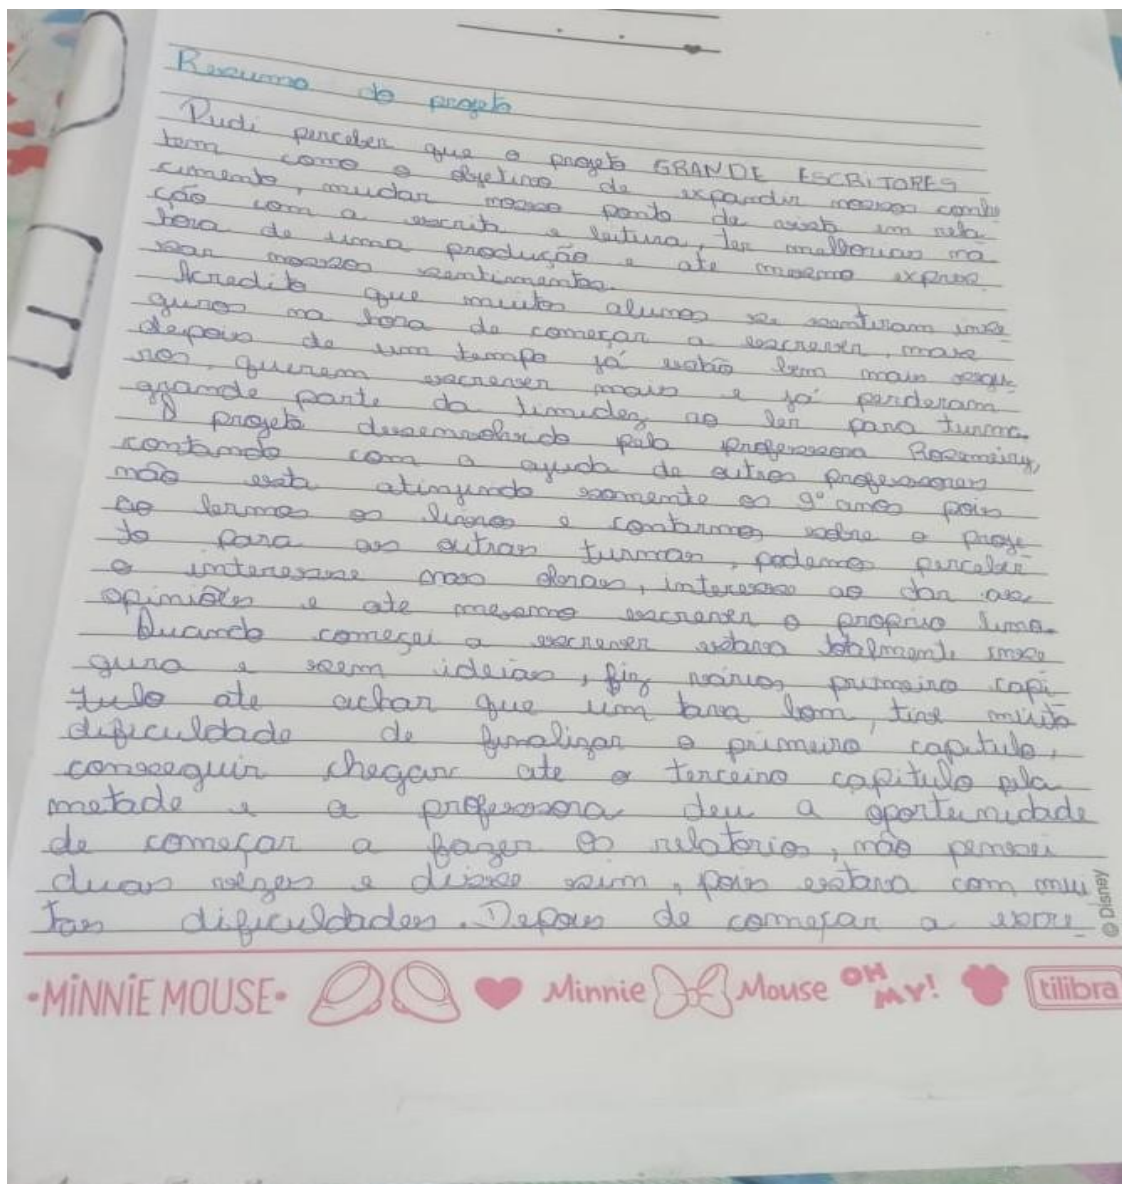 Resumo do projeto
Pudi perceber que o projeto GRANDE ESCRITORES
tem como o objetivo de expandir nossos conhe
cimento, mudar nosso ponto de vista em rela
ção com a escrita e leitura, ter melhorias na
hora de uma produção e até mesmo expres
sar nossos sentimentos.
Acredito que muitos alunos se sentiram inse
guros na hora de começar a escrever, mas
depois de um tempo já estão bem mais segu
ros, querem escrever mais e já perderam
grande parte da timidez ao ler para turma.
O projeto desenvolvido pela professora Rosemeiry,
contando com a ajuda de outros professores
não esta atingindo somente os 9º anos pois
ao lermos os livros e contarmos sobre o proje
to para as outras turmas, podemos perceber
o interesse nas obras, interesse ao dar as
opiniões e ate mesmo escrever o proprio livro.
Quando começei a escrever estava totalmente inse
gura e sem ideias, fiz vários primeiro capi
tulo ate achar que um tava bom, tive muita
dificuldade de finalizar o primeiro capitulo,
conseguir chegar ate o terceiro capitulo pela
metade e a professora deu a oportunidade
de começar a fazer os relatorios, não pensei
duas vezes e disse sim, pois estava com mui
tas dificuldades. Depois de começar a escre
© Disney
•MiNNiE MOUSE•
Minnie Mouse OH MY! tilibra